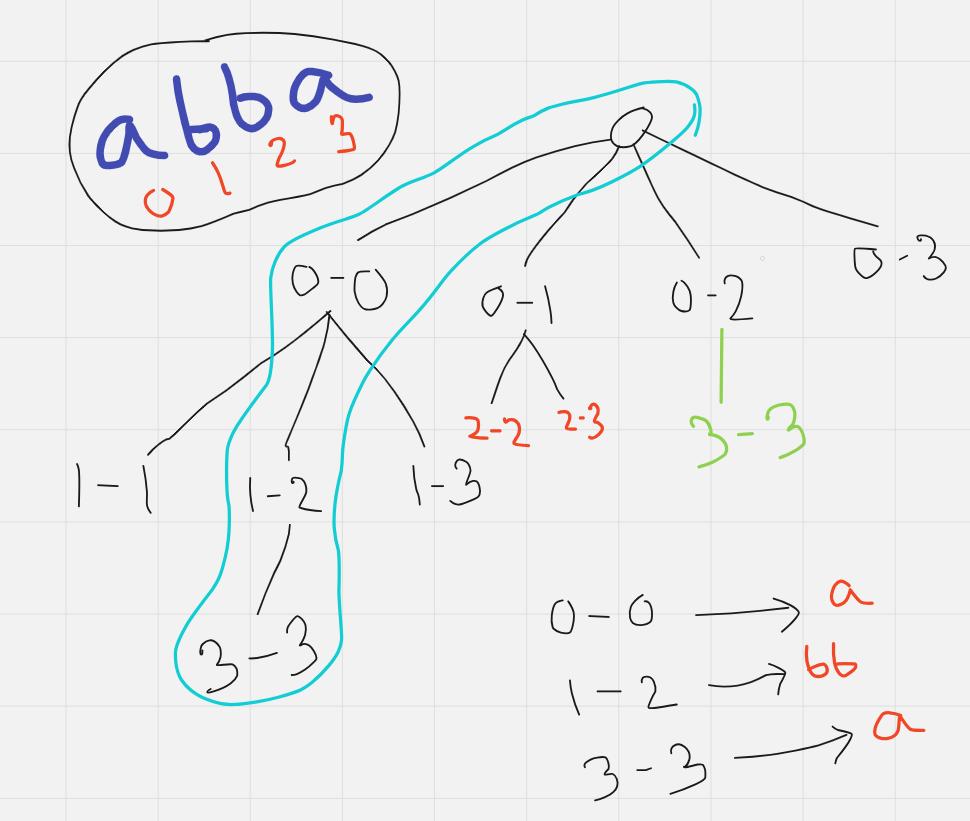 abba
0 1 2 3
0-0 0-1 0-2 0-3
1-1 1-2 1-3 2-2 2-3 3-3
3-3
0-0 → a
1-2 → bb
3-3 → a